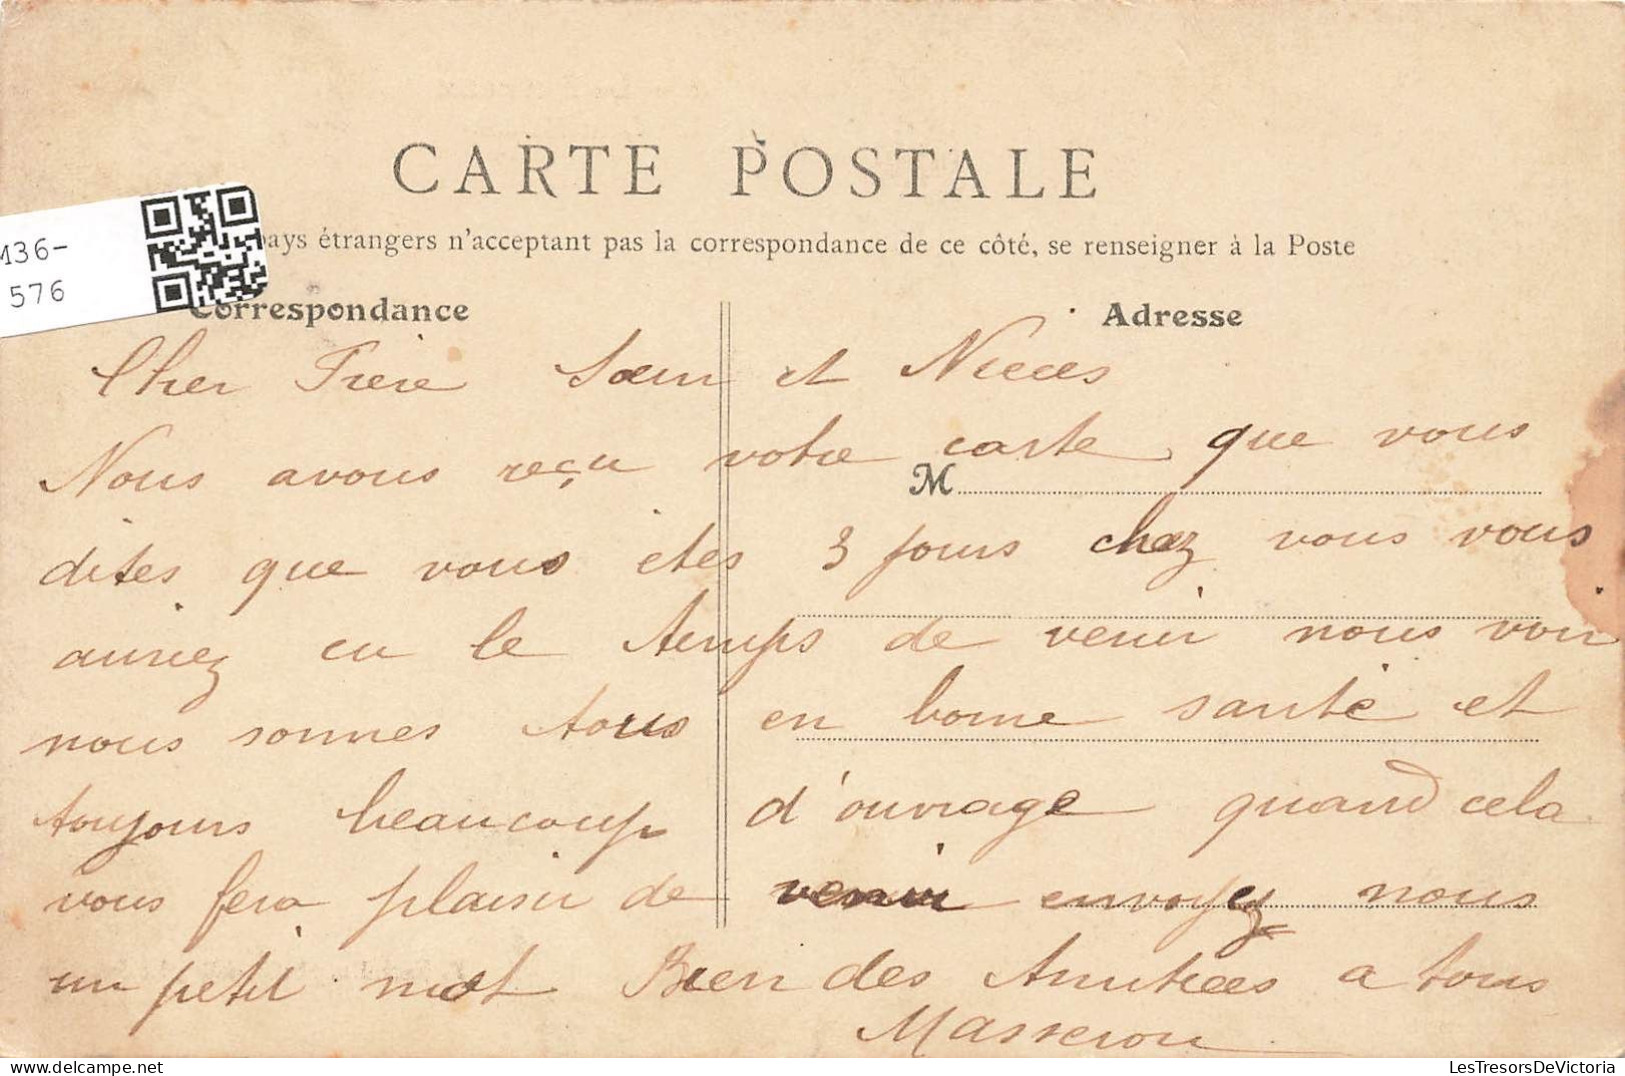 CARTE POSTALE
136-
576
pays étrangers n'acceptant pas la correspondance de ce côté, se renseigner à la Poste
Correspondance
Adresse
Cher Frère Sœur et Nieces
Nous avons reçu votre carte que vous
M
dites que vous étes 3 jours chez vous vous
auriez eu le temps de venir nous voir
nous sonnes tous en bonne santé et
toujours beaucoup d'ouvrage quand cela
vous fera plaisir de venir envoyez nous
un petit mot Bien des Amitiees a tous
Masseron
LesTresorsDeVictoria